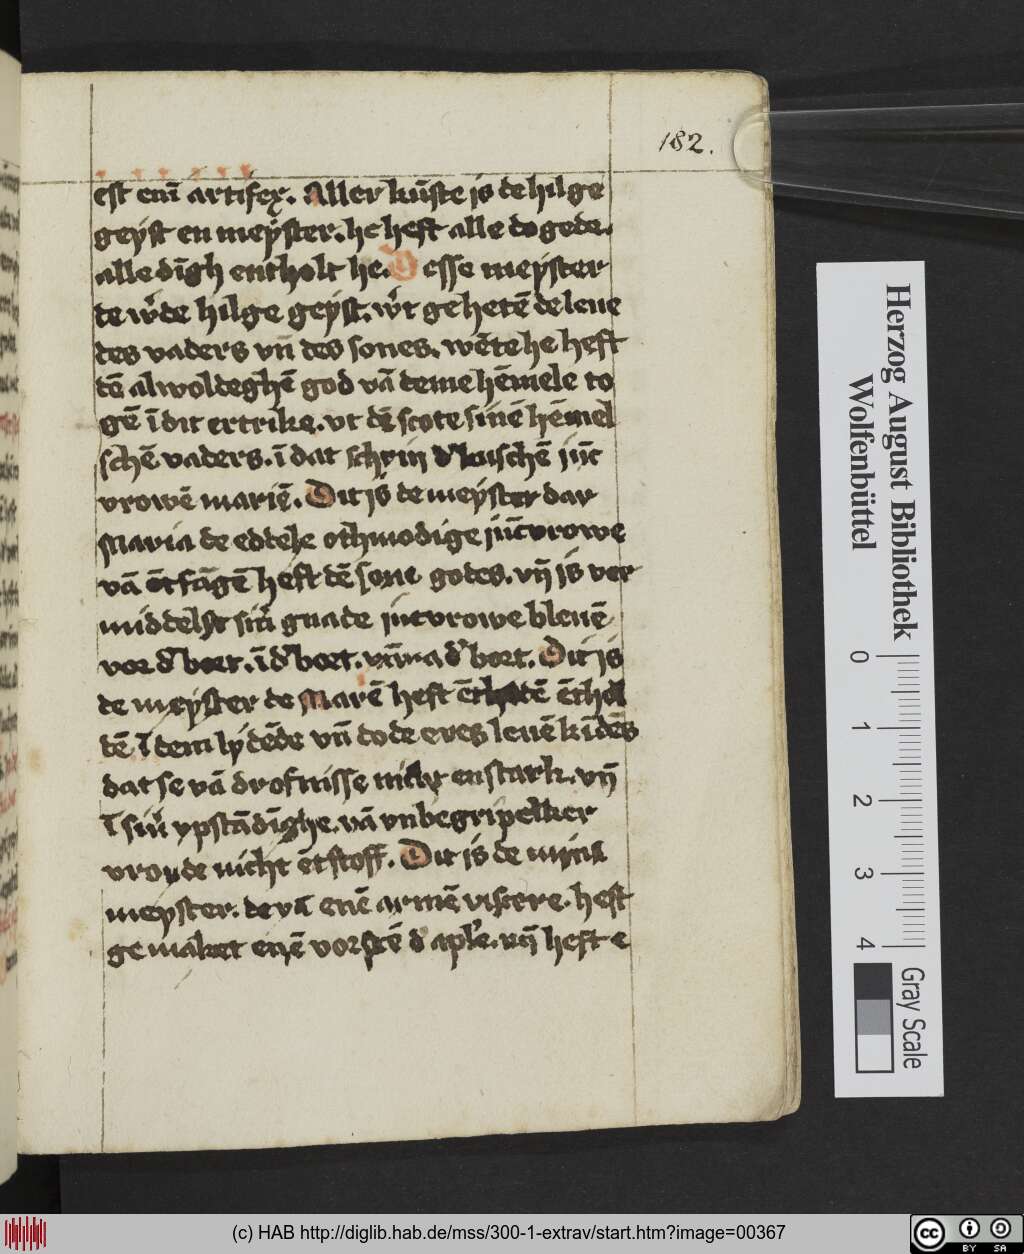 182.
est eni᷑ artifex. Aller kūste is de hilge
geyst en meyster. he heft alle dogede.
alle dīgh entholt he. Desse meyster
de w͛de hilge geyst. w͛t gehetē de leue
des vaders vn̄ des sones. wēte he heft
dē alwoldeghē god vā deme hēmele to
gē ī dit ertrike. vt dē scote sinē hēmel
schē vaders. ī dat schrin d͛ kuschē jūc
vrowē mariē. Dit is de meyster dar
Maria de eddele othmodige jūcvrowe
vā ētfāgē heft dē sone godes. vn̄ is ver
middelst sin͛ gnade jūcvrowe bleuē
vor d͛ bort. ī d͛ boet. vn̄ na d͛ bort. Dit is
de meyster de Marē heft ēthaldē
dē ī dem lydēde vn̄ dode eres leuē kīdēs
dat se vā drofnisse nicht enstarf. vn̄
ī sin͛ vpstādīghe. vā vnbegripelker
vroude nicht ētstoff. Dit is de
meyster. de vā enē armē viscere. heft
gemaket enē vorstē d͛ ap͛le. vn̄ heft e
Herzog August Bibliothek
Wolfenbüttel
0 1 2 3 4
Gray Scale
(c) HAB http://diglib.hab.de/mss/300-1-extrav/start.htm?image=00367
cc BY SA